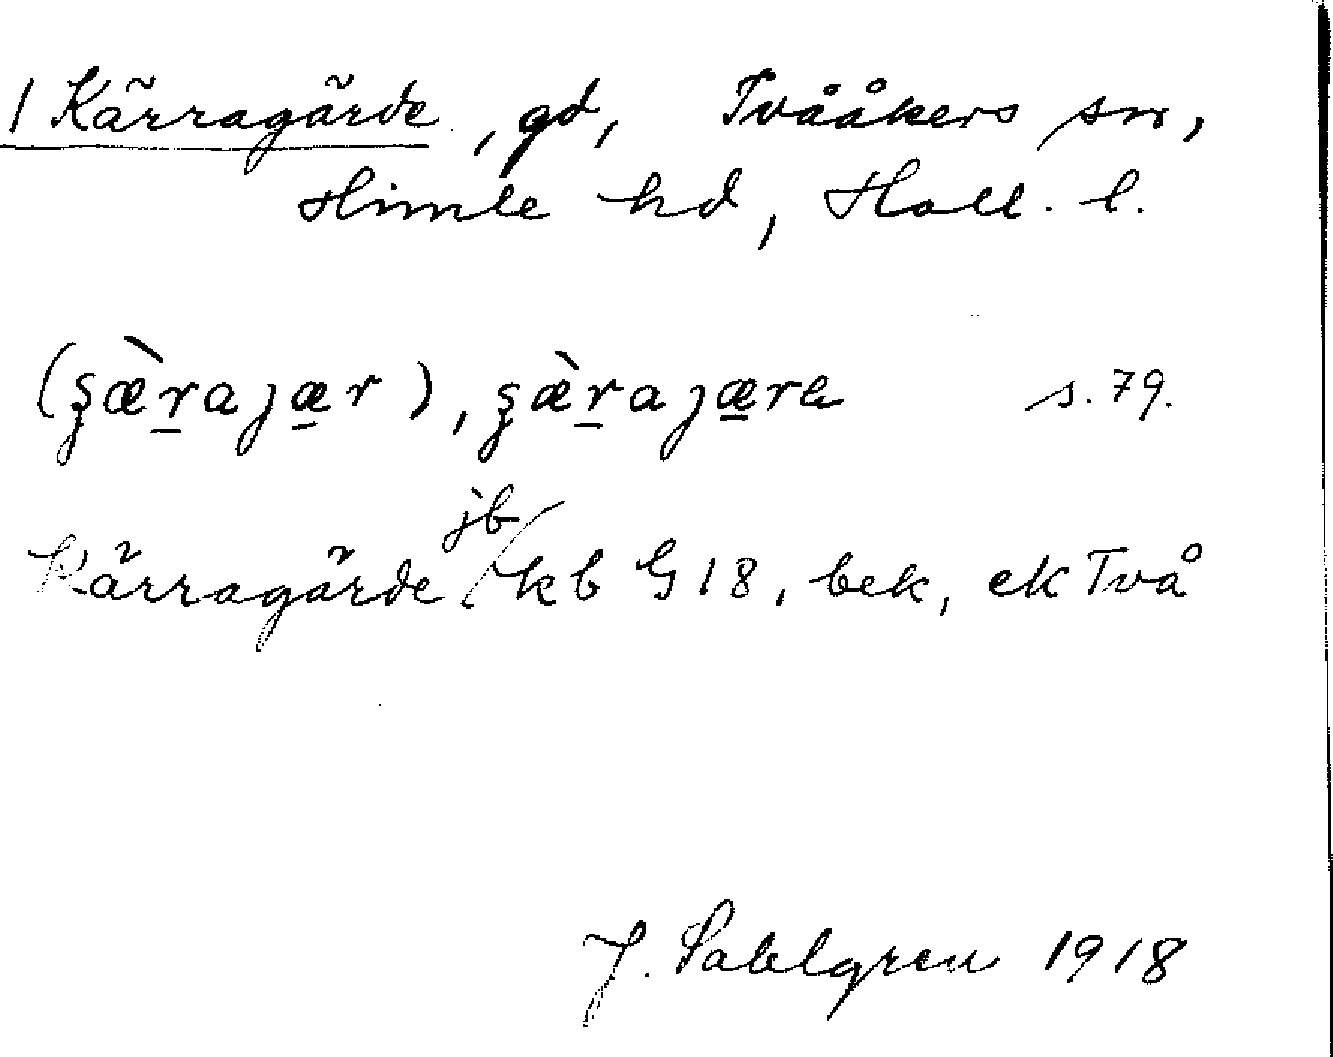 1 Kärragärde, gd, Tvååkers sn,
Himle hd, Hall. l.
(ʂæ̀r̲ajæ̲r), ʂæ̀r̲ajæ̲rə s. 79.
jb
Kärragärde / kb G 18, bek, ek Två
J. Sahlgren 1918